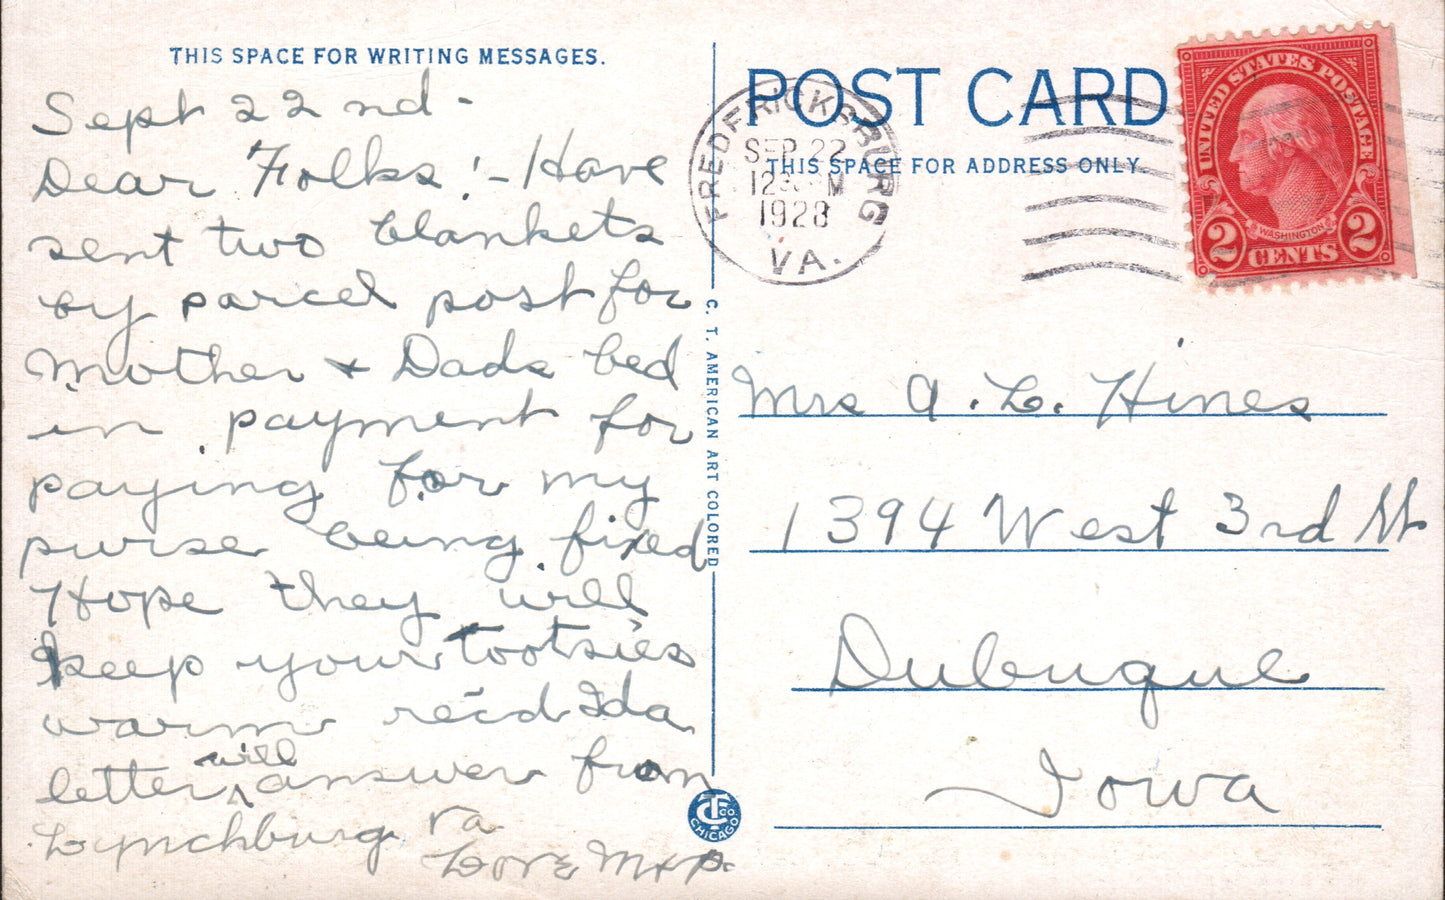 THIS SPACE FOR WRITING MESSAGES.
Sept 22nd -
Dear Folks! - Have
sent two blankets
by parcel post for
Mother + Dads bed
in payment for
paying for my
purse being fixed
Hope they will
keep your tootsies
warm rec'd Ida
letter will answer from
Lynchburg Va
Love M + P.
C. T. AMERICAN ART COLORED
CTCO.
CHICAGO
POST CARD
THIS SPACE FOR ADDRESS ONLY.
FREDERICKSBURG
SEP 22
12 M
1928
VA.
UNITED STATES POSTAGE
WASHINGTON
2 CENTS 2
Mrs A. L. Hines
1394 West 3rd St
Dubuque
Iowa